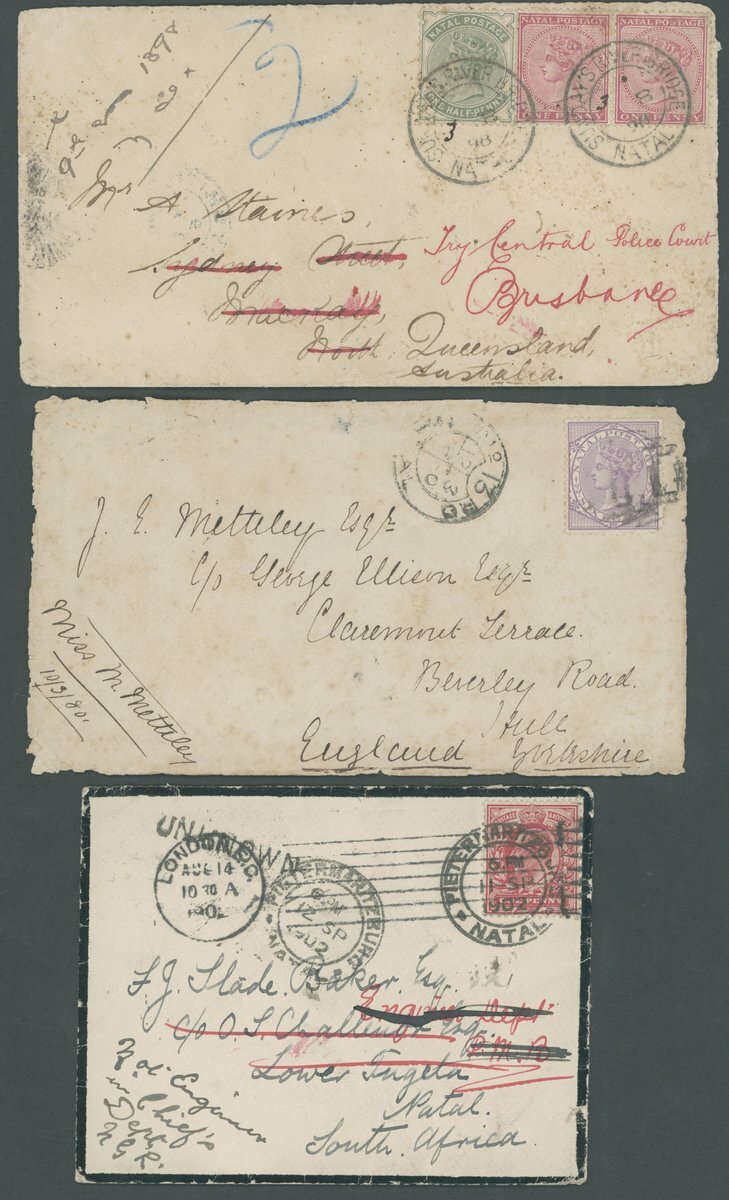 NATAL POSTAGE
NATAL POSTAGE
NATAL POSTAGE
ONE HALF-PENNY
ONE PENNY
ONE PENNY
RIVER
98
NATAL
3
SUNDAY'S RIVER BRIDGE
98
NATAL
3
2
1898
Mr A Staines,
Sydney Street,
Mackay,
North, Queensland,
Australia.
Try Central Police Court
Brisbane
NATAL POSTAGE
13
J. E. Metteley Esqr
c/o George Ellison Esqr
Claremont Terrace.
Beverley Road.
Hull
England Yorkshire
Miss M. Metteley
10/3/80.
UNKNOWN
LONDON. E.C.
AUG 14
10 30 A
1902
PIETERMARITZBURG
6 PM
12 SP
1902
NATAL
PIETERMARITZBURG
PM
11 SP
1902
NATAL
F. J. Slade Baker. Esq.
Engineer Dept
c/o O. S. Challenor Esq.
P. M. B
Lower Tugela
Natal.
South. Africa.
Not Engineer
in Chief's
Dept
N G R.